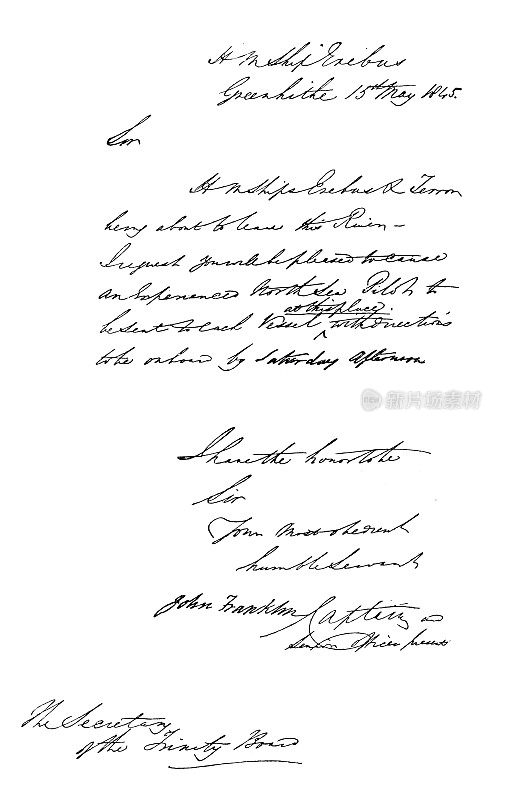 H M Ship Erebus
Greenhithe 15th May 1845.
Sir
H M Ships Erebus & Terror
being about to leave this River –
I request you will be pleased to cause
an Experienced North Sea Pilot to
at this place.
be sent to each Vessel ^ with directions
to be on board by Saturday Afternoon
新片场素材
I have the honor to be
Sir
Your most obedient
humble Servant
John Franklin Captain
Senior Officer present
The Secretary
of the Trinity Board